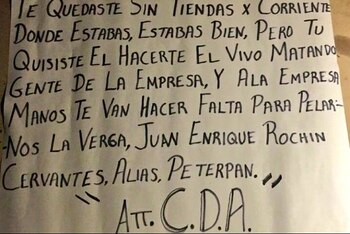 TE QUEDASTE SIN TIENDAS X CORRIENTE
DONDE ESTABAS, ESTABAS BIEN, PERO TU
QUISISTE EL HACERTE EL VIVO MATANDO
GENTE DE LA EMPRESA, Y ALA EMPRESA
MANOS TE VAN HACER FALTA PARA PELAR-
NOS LA VERGA, JUAN ENRIQUE ROCHIN
CERVANTES, ALIAS, PETERPAN.,,
" ATT. C.D.A. "